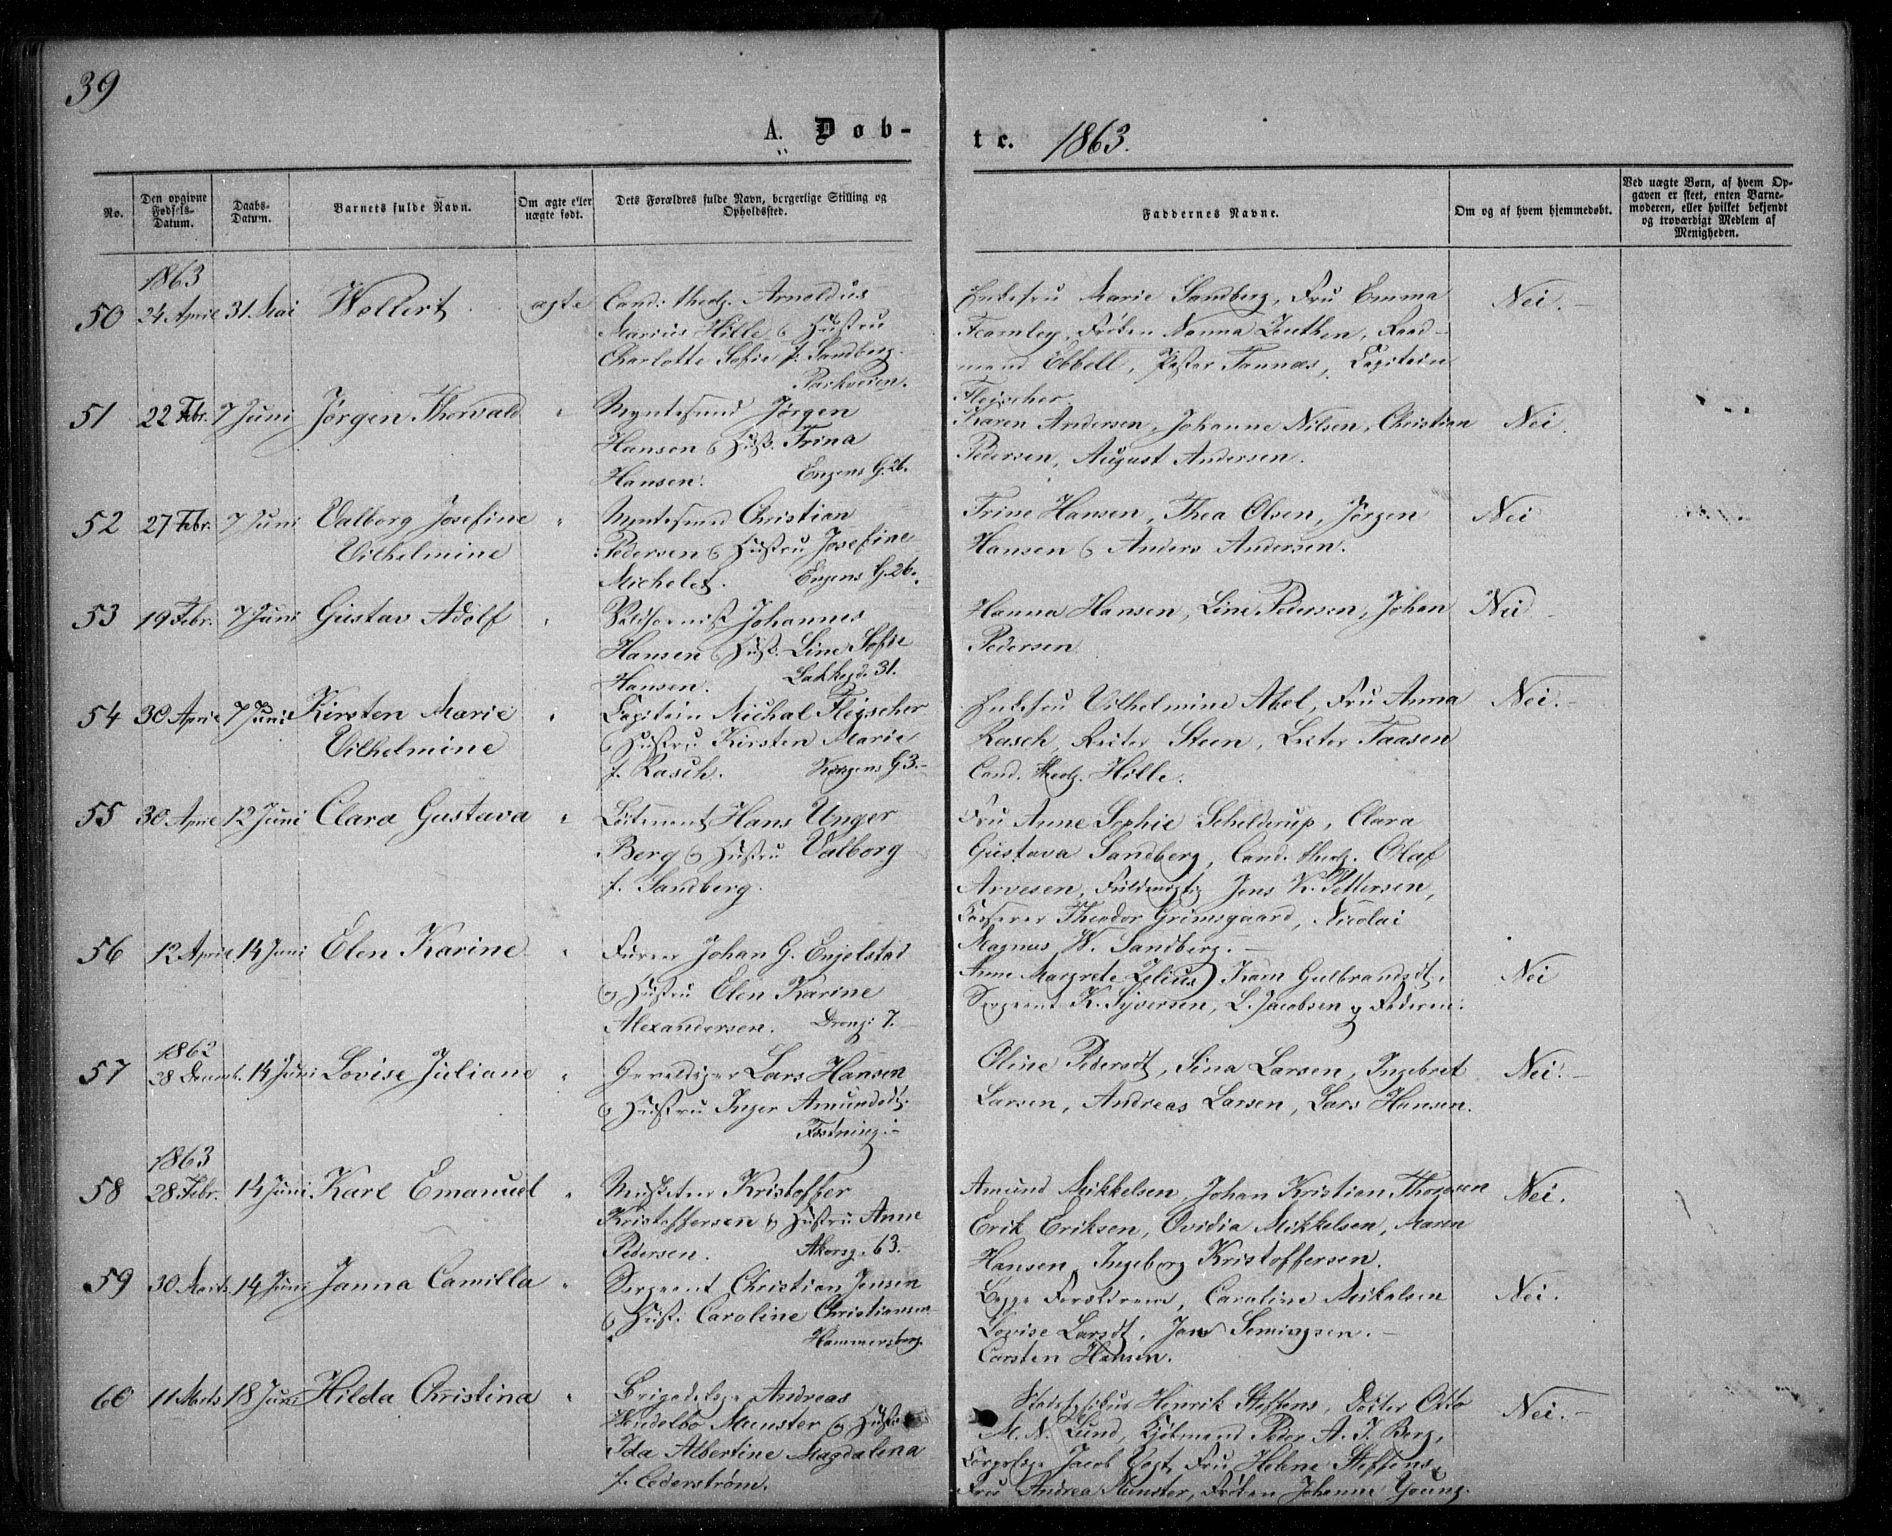 39
A. Døb-
te. 1863.
No.
Den opgivne Fødsels-Datum.
Daabs-Datum.
Barnets fulde Navn.
Om ægte eller uægte født.
Dets Forældres fulde Navn, borgerlige Stilling og Opholdssted.
Faddernes Navne.
Om og af hvem hjemmedøbt.
Ved uægte Børn, af hvem Opgaven er skeet, enten Barnemoderen, eller hvilket bekjendt og troværdigt Medlem af Menigheden.
1863
50 24 April 31 Mai Wollert ægte Cand: theol. Arnoldus
Marius Hille & Hustru
Charlotte Sofie f. Sandberg.
Parkveien.
Enkefru Marie Sandberg, Fru Emma
Fearnley, Frøken Nanna Zeuthen, Raad-
mand Ebbell, Pastor Tannæs, Capitein
Fleischer.
Nei.
51 22 Febr. 7 Juni Jørgen Thorvald " Myntsmed Jørgen
Hansen & Hust. Trina
Hansen. Engens G. 26.
Karen Andersen, Johanne Nilsen, Christian
Pedersen, August Andersen.
Nei.
52 27 Febr. 7 Juni Valborg Josefine " Myntsmed Christian
Vilhelmine
Pedersen & Hustru Josefine
Michelet. Engens G. 26.
Trine Hansen, Thea Olsen, Jørgen
Hansen & Anders Andersen.
Nei
53 19 Febr. 7 Juni Gustav Adolf " Johannes
Hansen & Hust. Line Sofie
Hansen. Lakkegd. 31.
Hanna Hansen, Line Pedersen, Johan
Pedersen
Nei
54 30 April 7 Juni Kirsten Marie " Capitein Michal Fleischer
Vilhelmine
& Hustru Kirsten Marie
f. Rasch. Kongens G 3.
Enkefru Vilhelmine Abel, Fru Anna
Rasch, Steen, Taasen
Cand. theol. Hille.
Nei.
55 30 April 12 Juni Clara Gustava " Løitenant Hans Unger
Berg & Hustru Valborg
f. Sandberg.
Fru Anne Sophie Schelderup, Clara
Gustava Sandberg, Cand. theol. Olaf
Arvesen, Fuldmægtig Jens K. Pettersen,
Kasserer Theodor Grimsgaard, Nicolai
Magnus W. Sandberg.
56 12 April 14 Juni Elen Karine " Furer Johan G. Engelstad
& Hustru Elen Karine
Alexandersen. Drongs 7.
Anne Margrete Zelius, Karn Gulbrandsdt.
Sergeant K. Syversen, L. Jacobsen & Faderen.
Nei
1862
57 28 Decemb. 14 Juni Lovise Juliane " Geveldiger Lars Hansen
& Hustru Inger Amundsdt.
Fæstning.
Oline Pedersdt, Sina Larsen, Ingebret
Larsen, Andreas Larsen, Lars Hansen.
Nei.
1863
58 28 Febr. 14 Juni Karl Emanuel " Musketeer Kristoffer
Kristoffersen & Hustru Anne
Pedersen. Akersg. 63.
Amund Mikkelsen, Johan Kristian Thoresen
Erik Eriksen, Ovidia Mikkelsen, Maren
Hansen, Ingeborg Kristoffersen.
Nei.
59 30 Marts 14 Juni Janna Camilla " Sergeant Christian Jensen
& Hust. Caroline Christiansen
Hammersborg.
Begge Forældrene, Caroline Mikalsen
Lovise Larsdt, Jan Semingsen.
Carsten Hansen.
Nei.
60 11 Marts 18 Juni Hilda Christina " Brigadelæge Andreas
Hudelbo Munster & Hustru
Ida Albertine Magdalena
f. Cederstrøm.
Stadsfysikus Henrik Steffens, Doctor Otto
M. N. Lund, Kjøbmand Peder A. J. Berg,
Corpslæge Jacob Vogt, Fru Helene Steffens,
Frue Andrea Munster, Frøken Johanne Young.
Nei.